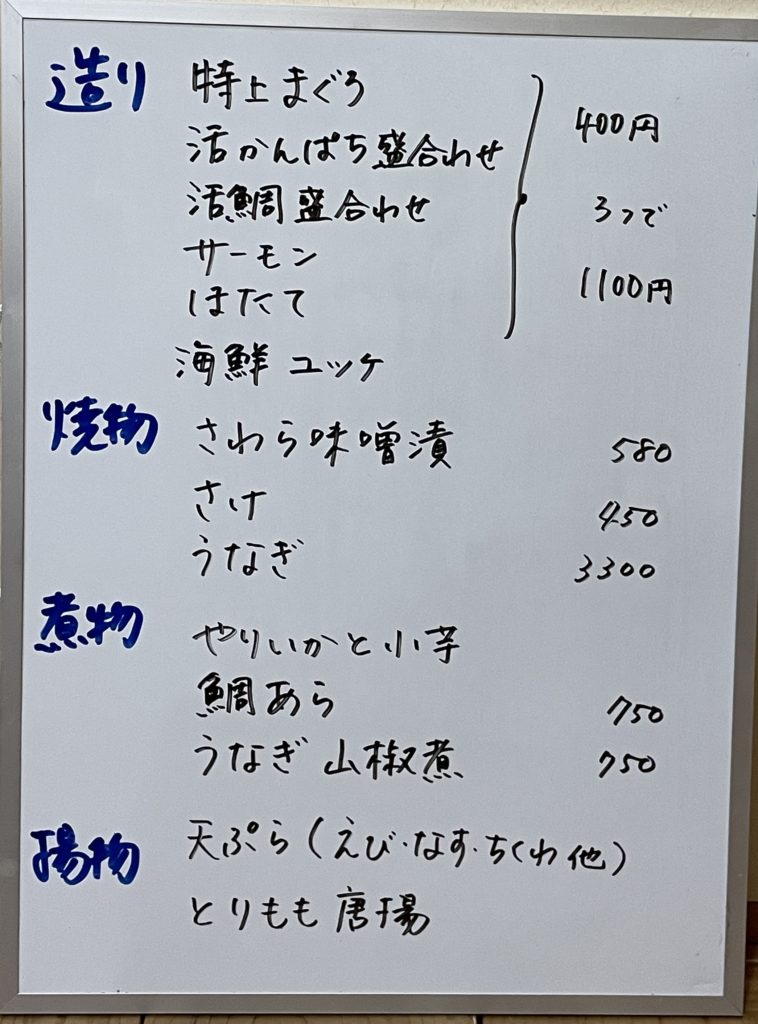 造り 特上まぐろ
活かんぱち盛合わせ 400円
活鯛盛合わせ 3つで
サーモン
ほたて 1100円
海鮮ユッケ
焼物 さわら味噌漬 580
さけ 450
うなぎ 3300
煮物 やりいかと小芋
鯛あら 750
うなぎ山椒煮 750
揚物 天ぷら(えび・なす・ちくわ他)
とりもも唐揚